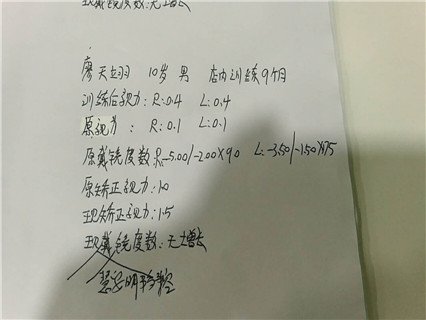 现戴镜度数:无增长
廖天翊 10岁 男 店内训练9个月
训练后视力: R:0.4 L:0.4
原视力: R:0.1 L:0.1
原戴镜度数:R:-5.00/-2.00×90 L:-3.50/-1.50×175
原矫正视力:1.0
现矫正视力:1.5
现戴镜度数:无增长